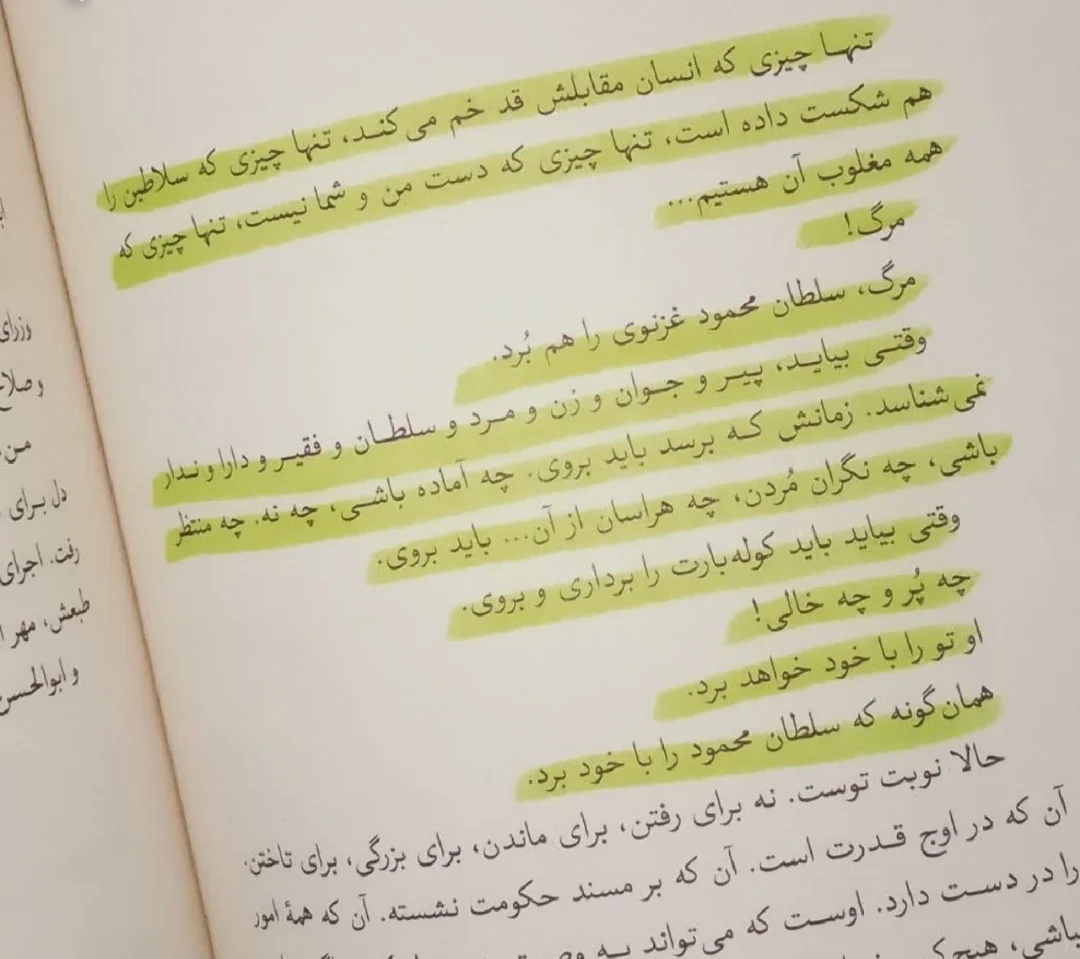 تنهـا چیزی که انسان مقابلش قد خم می‌کنـد، تنها چیزی که سلاطین را
هم شکست داده است، تنها چیزی که دست من و شما نیست، تنها چیزی که
همه مغلوب آن هستیم...
مرگ!
مرگ، سلطان محمود غزنوی را هم بُرد.
وقتـی بیایـد، پیـر و جـوان و زن و مـرد و سلطـان و فقیـر و دارا و نـدار
نمی‌شناسد. زمانش کـه برسد باید بروی. چه آماده باشـی، چه نه. چه منتظر
باشی، چه نگران مُردن، چه هراسان از آن... باید بروی.
وقتی بیاید باید کوله‌بارت را برداری و بروی.
چه پُر و چه خالی!
او تو را با خود خواهد برد.
همان‌گونه که سلطان محمود را با خود برد.
حالا نوبت توست. نه برای رفتن، برای ماندن، برای بزرگی، برای تاختن.
آن که در اوج قـدرت است. آن که بر مسند حکومت نشسته. آن که همهٔ امور
را در دسـت دارد. اوسـت که می‌تواند بـه
باشی،
وزرای
من
دل بـرای
رفت. اجرای
طبعش، مهر
و ابوالحسن